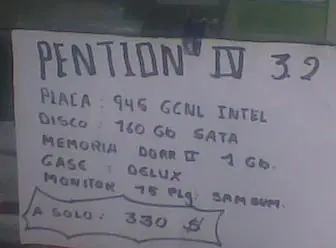 PENTION IV 3.2
PLACA : 945 GCNL INTEL
DISCO : 160 Gb SATA
MEMORIA DDRR II 1 Gb.
CASE : DELUX
MONITOR 15 Plg. SAMSUM.
A SOLO : 330 $